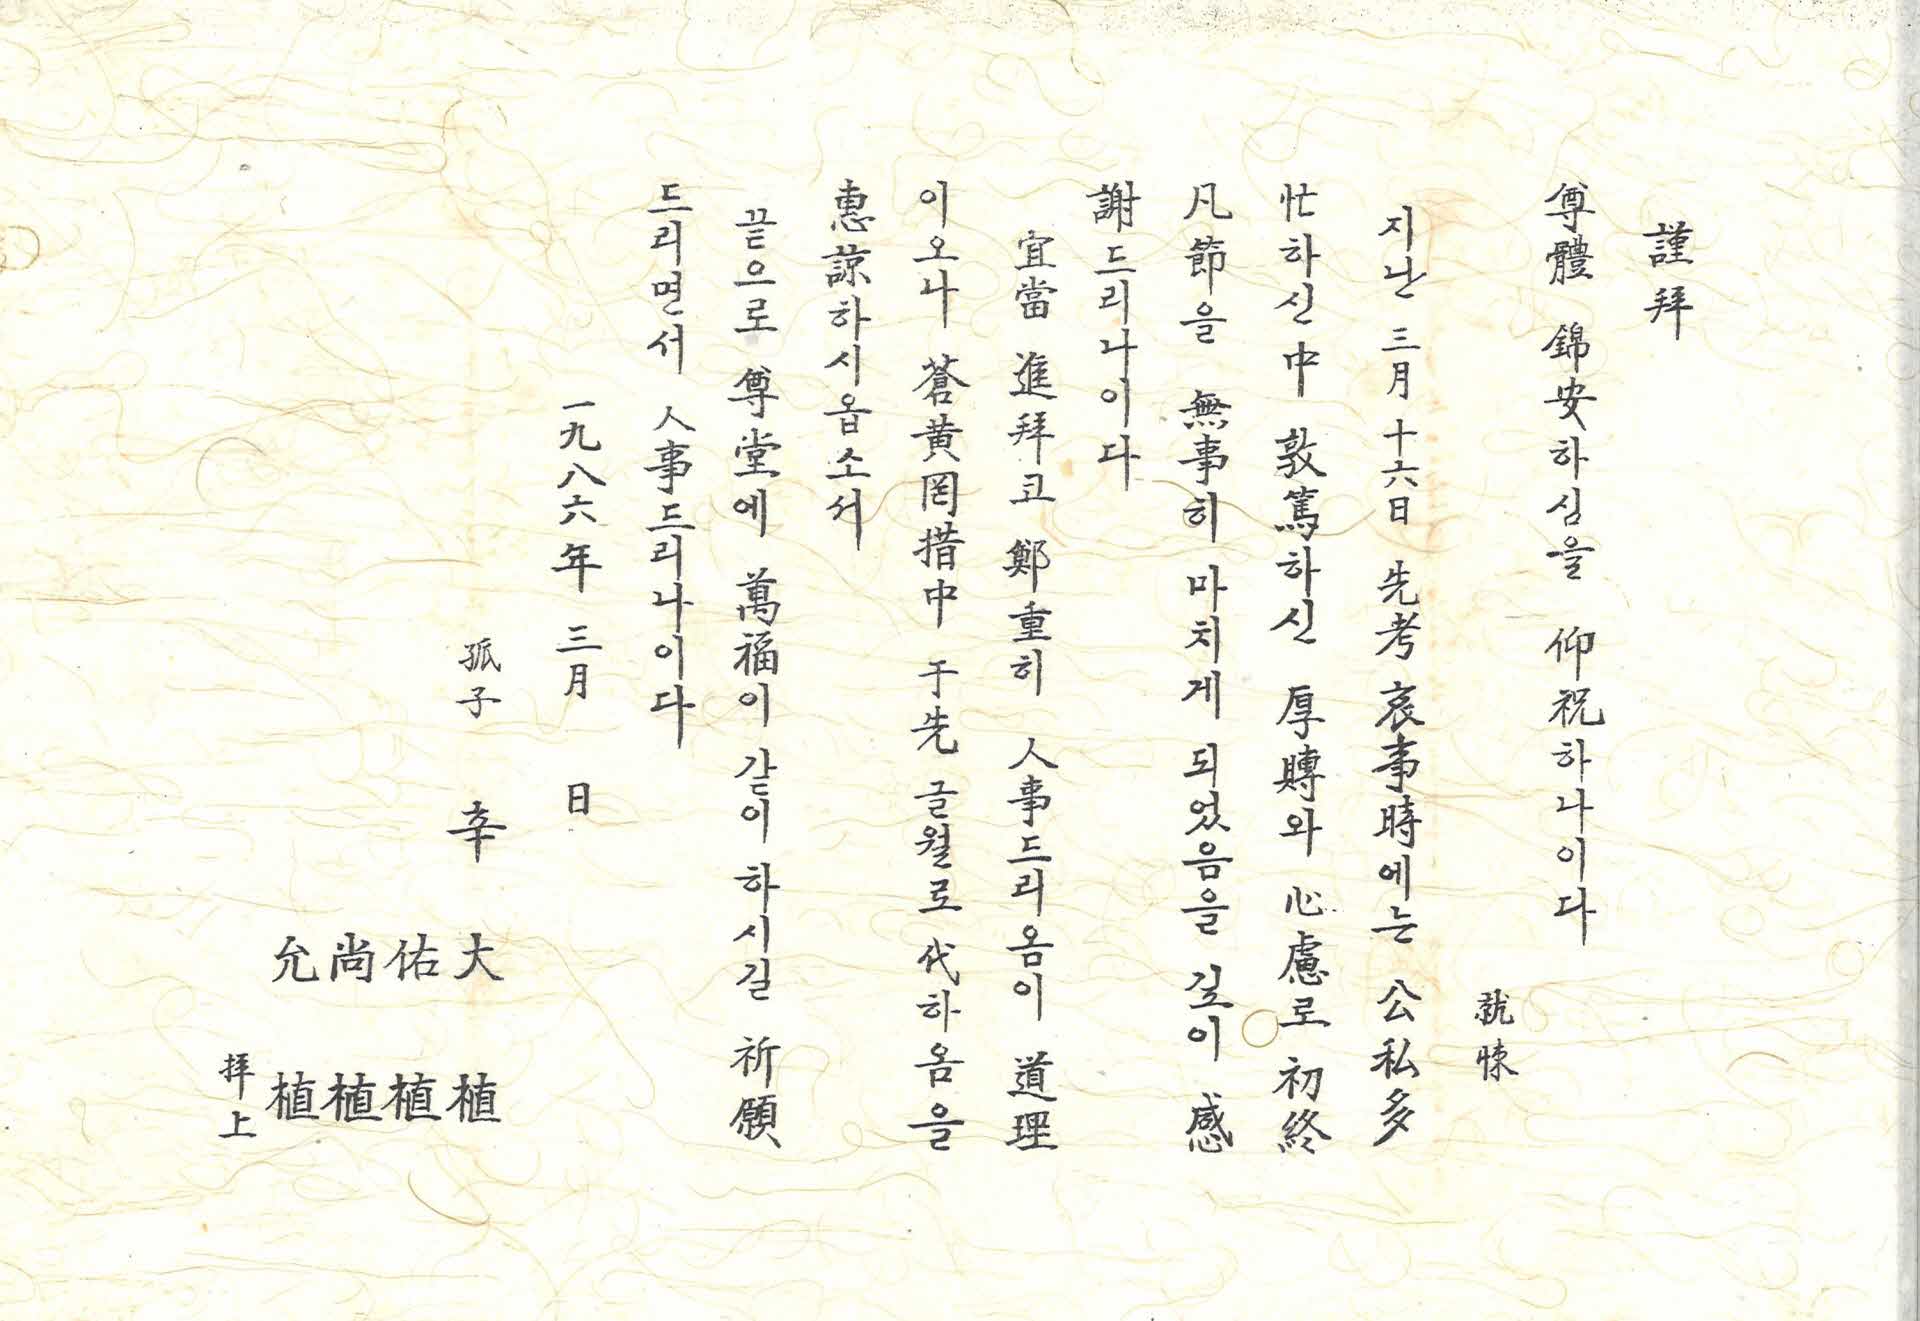 謹拜
尊體 錦安하심을 仰祝하나이다
就悚
지난 三月 十六日 先考 哀事時에는 公私多
忙하신中 敦篤하신 厚賻와 心慮로 初終
凡節을 無事히 마치게 되었음을 깊이 感
謝드리나이다
宜當 進拜코 鄭重히 人事드리옴이 道理
이오나 蒼黃罔措中 于先 글월로 代하옴을
惠諒하시옵소서
끝으로 尊堂에 萬福이 같이 하시길 祈願
드리면서 人事드리나이다
一九八六年 三月 日
孤子 辛 大植
佑植
尚植
允植
拜上